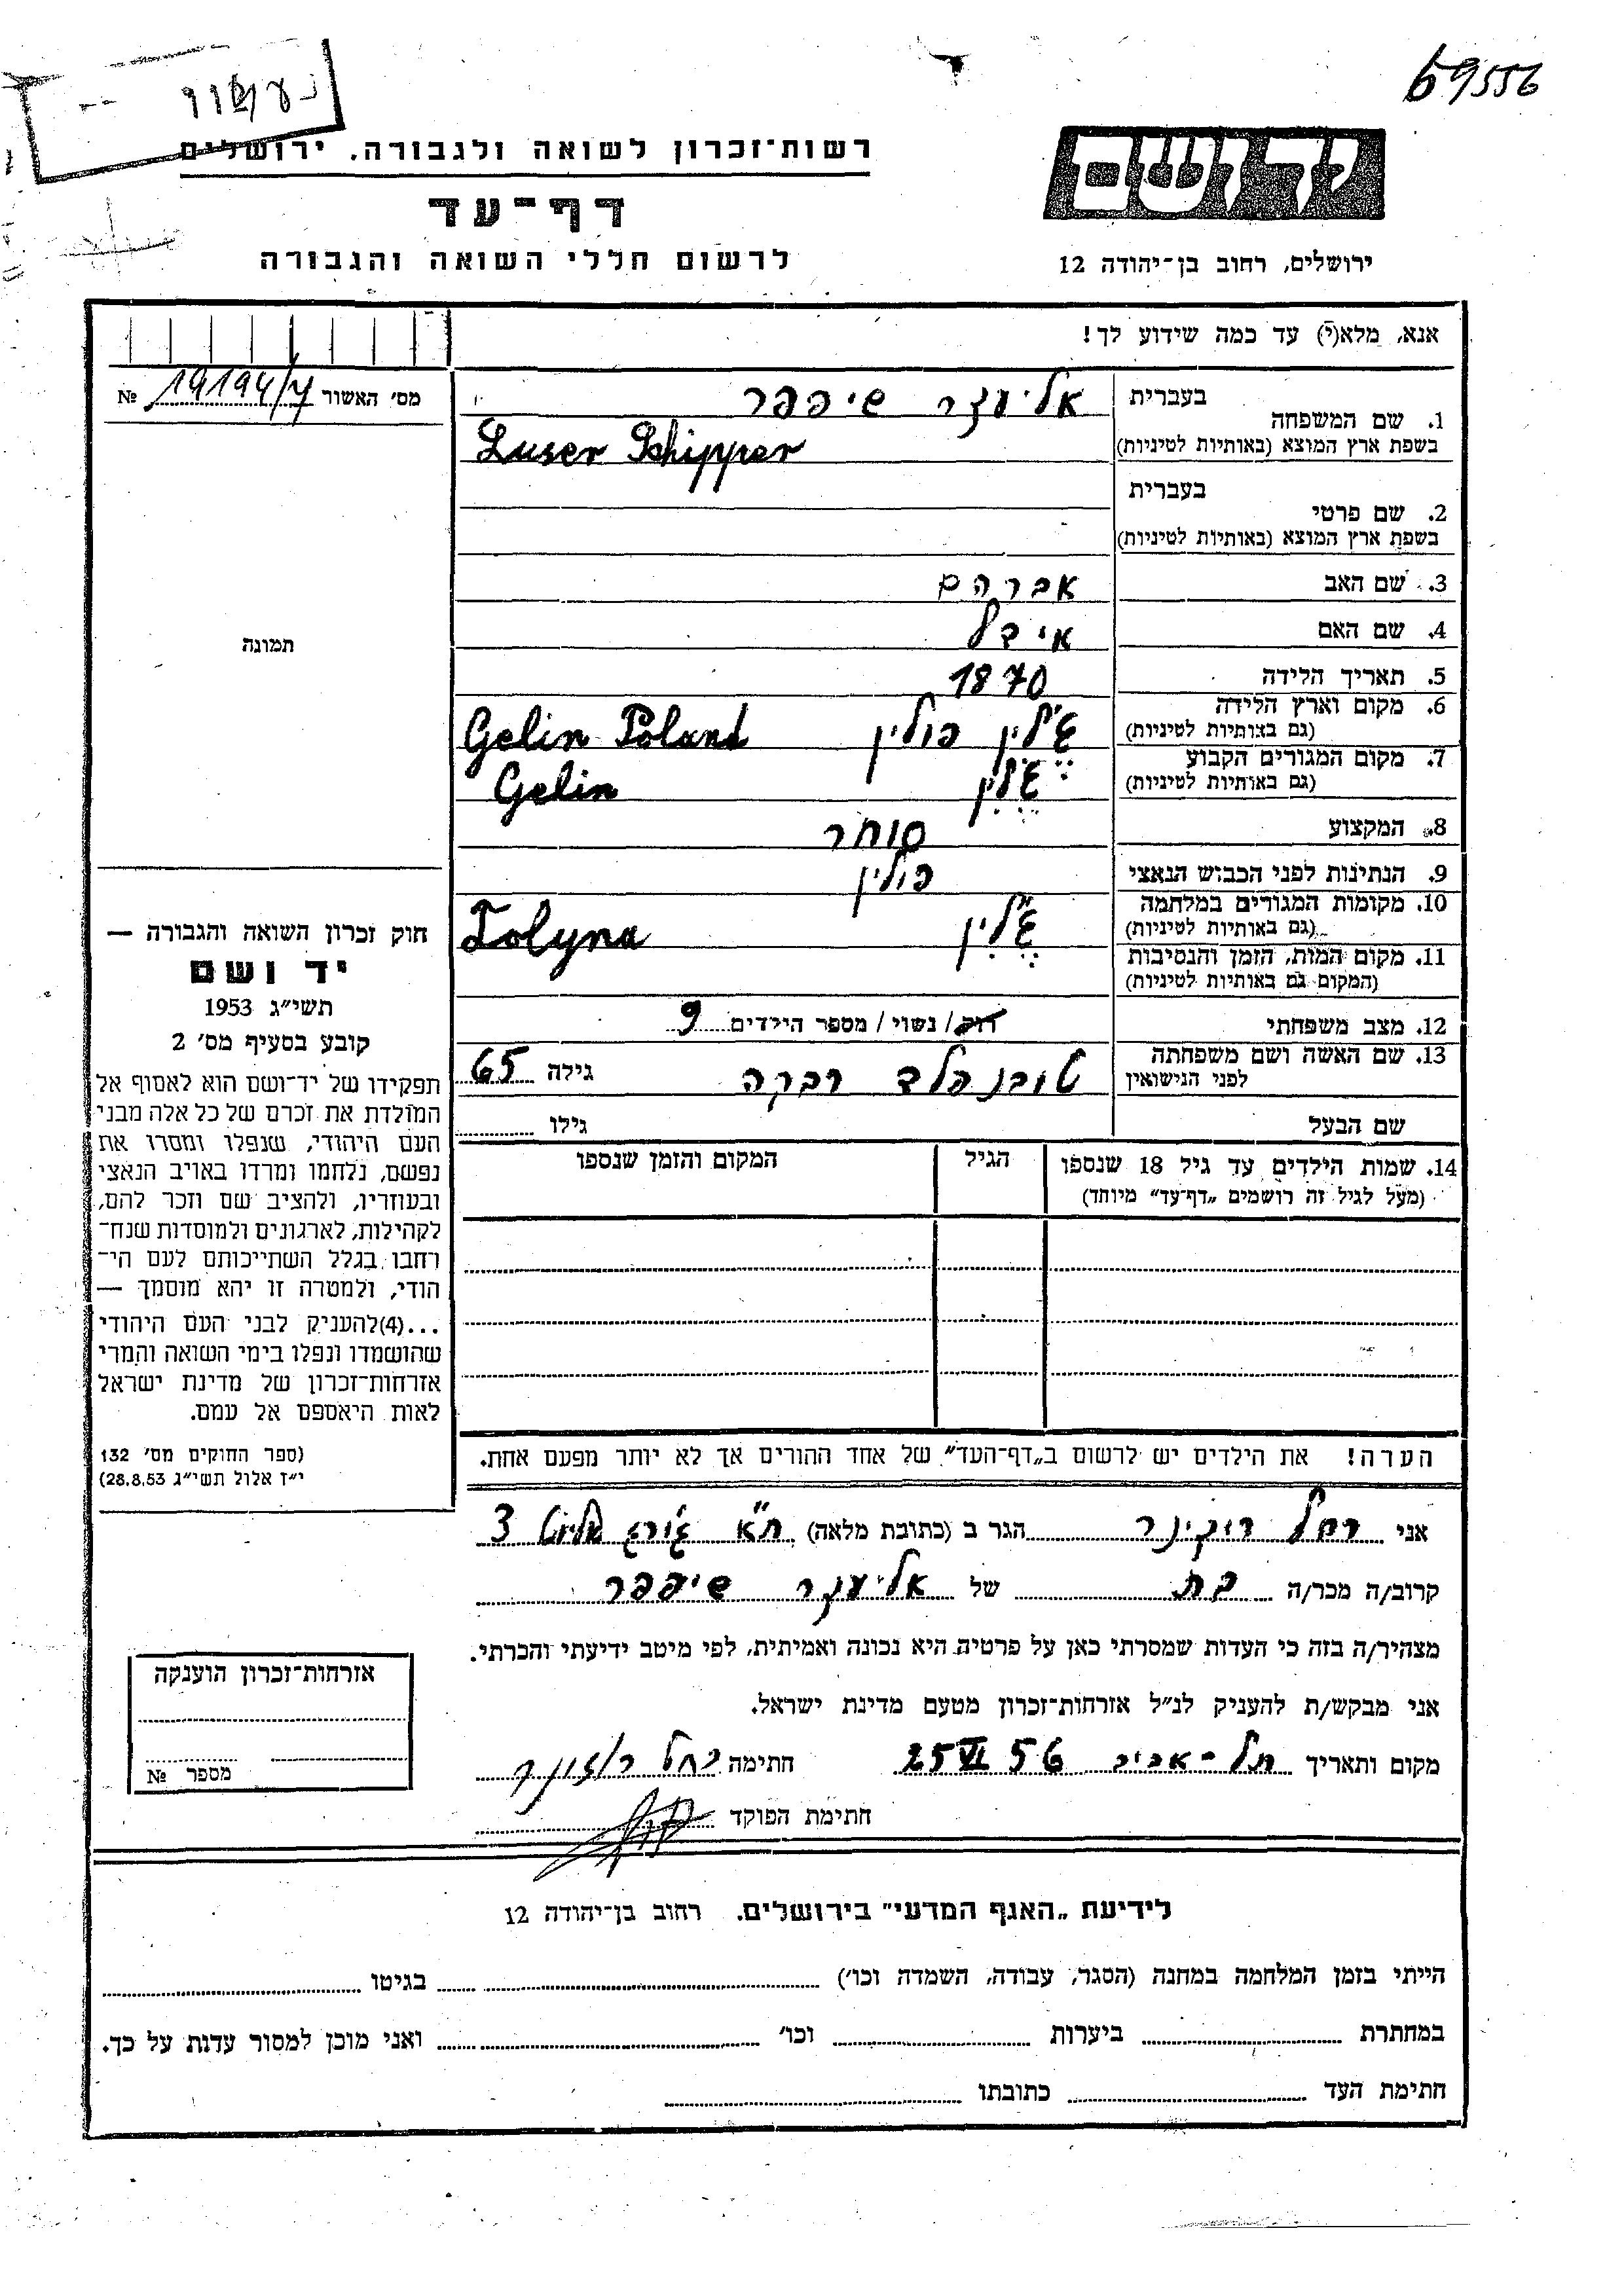 69556
רשות־זכרון לשואה ולגבורה. ירושלים
יד ושם
דף־עד
לרשום חללי השואה והגבורה
ירושלים, רחוב בן־יהודה 12
אנא, מלא(י) עד כמה שידוע לך!
מס׳ האשור 19194/ № 
1. שם המשפחה בעברית אליעזר שיפפר
בשפת ארץ המוצא (באותיות לטיניות) Luser Schipper
2. שם פרטי בעברית
בשפת ארץ המוצא (באותיות לטיניות)
3. שם האב אברהם
4. שם האם אידל
5. תאריך הלידה 1870
6. מקום וארץ הלידה (גם באותיות לטיניות) פולין Gelin Poland
7. מקום המגורים הקבוע (גם באותיות לטיניות) Gelin
8. המקצוע סוחר
9. הנתינות לפני הכבוש הנאצי פולין
10. מקומות המגורים במלחמה (גם באותיות לטיניות)
11. מקום המות, הזמן והנסיבות (המקום גם באותיות לטיניות)
12. מצב משפחתי רוק / נשוי / מספר הילדים 9
13. שם האשה ושם משפחתה לפני הנישואין רבקה גילה 65
שם הבעל גילו
14. שמות הילדים עד גיל 18 שנספו הגיל המקום והזמן שנספו
(מעל לגיל זה רושמים „דף־עד״ מיוחד)
הערה! את הילדים יש לרשום ב„דף־העד״ של אחד ההורים אך לא יותר מפעם אחת.
תמונה
חוק זכרון השואה והגבורה —
יד ושם
תשי״ג 1953
קובע בסעיף מס׳ 2
תפקידו של יד־ושם הוא לאסוף אל
המולדת את זכרם של כל אלה מבני
העם היהודי, שנפלו ומסרו את
נפשם, נלחמו ומרדו באויב הנאצי
ובעוזריו, ולהציב שם וזכר להם,
לקהילות, לארגונים ולמוסדות שנח־
רחבו בגלל השתייכותם לעם הי־
הודי, ולמטרה זו יהא מוסמך —
...(4)להעניק לבני העם היהודי
שהושמדו ונפלו בימי השואה והמרי
אזרחות־זכרון של מדינת ישראל
לאות היאספם אל עמם.
(ספר החוקים מס׳ 132
י״ז אלול תשי״ג 28.8.53)
אני רחל הגר ב (כתובת מלאה) ת״א 3
קרוב/ה מכר/ה בת של אליעזר שיפפר
מצהיר/ה בזה כי העדות שמסרתי כאן על פרטיה היא נכונה ואמיתית, לפי מיטב ידיעתי והכרתי.
אני מבקש/ת להעניק לנ״ל אזרחות־זכרון מטעם מדינת ישראל.
מקום ותאריך תל-אביב 25 VI 56 חתימה רחל
חתימת הפוקד
אזרחות־זכרון הוענקה
מספר №
לידיעת „האגף המדעי״ בירושלים. רחוב בן־יהודה 12
הייתי בזמן המלחמה במחנה (הסגר, עבודה, השמדה וכו׳) בגיטו
במחתרת ביערות וכו׳ ואני מוכן למסור עדות על כך.
חתימת העד כתובתו